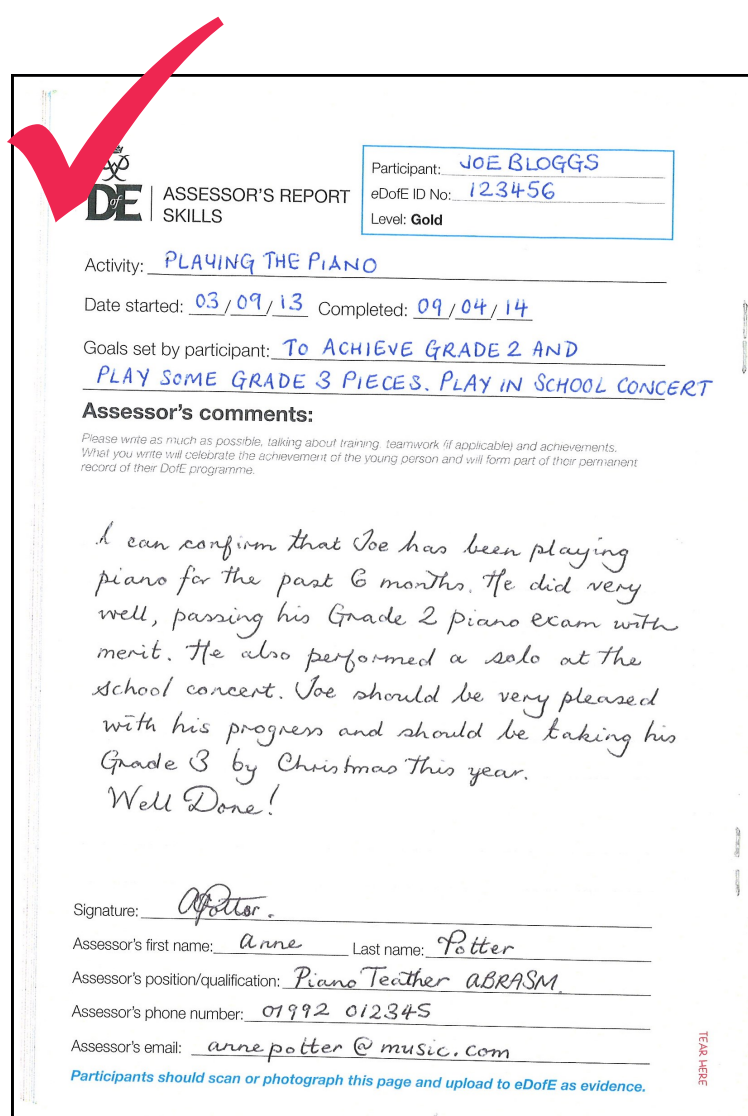 DofE
ASSESSOR'S REPORT
SKILLS
Participant: JOE BLOGGS
eDofE ID No: 123456
Level: Gold
Activity: PLAYING THE PIANO
Date started: 03/09/13 Completed: 09/04/14
Goals set by participant: TO ACHIEVE GRADE 2 AND
PLAY SOME GRADE 3 PIECES. PLAY IN SCHOOL CONCERT
Assessor's comments:
Please write as much as possible, talking about training, teamwork (if applicable) and achievements.
What you write will celebrate the achievement of the young person and will form part of their permanent
record of their DofE programme.
I can confirm that Joe has been playing
piano for the past 6 months. He did very
well, passing his Grade 2 piano exam with
merit. He also performed a solo at the
school concert. Joe should be very pleased
with his progress and should be taking his
Grade 3 by Christmas this year.
Well Done!
Signature: APotter.
Assessor's first name: Anne Last name: Potter
Assessor's position/qualification: Piano Teather ABRASM.
Assessor's phone number: 01992 012345
Assessor's email: annepotter@music.com
Participants should scan or photograph this page and upload to eDofE as evidence.
TEAR HERE